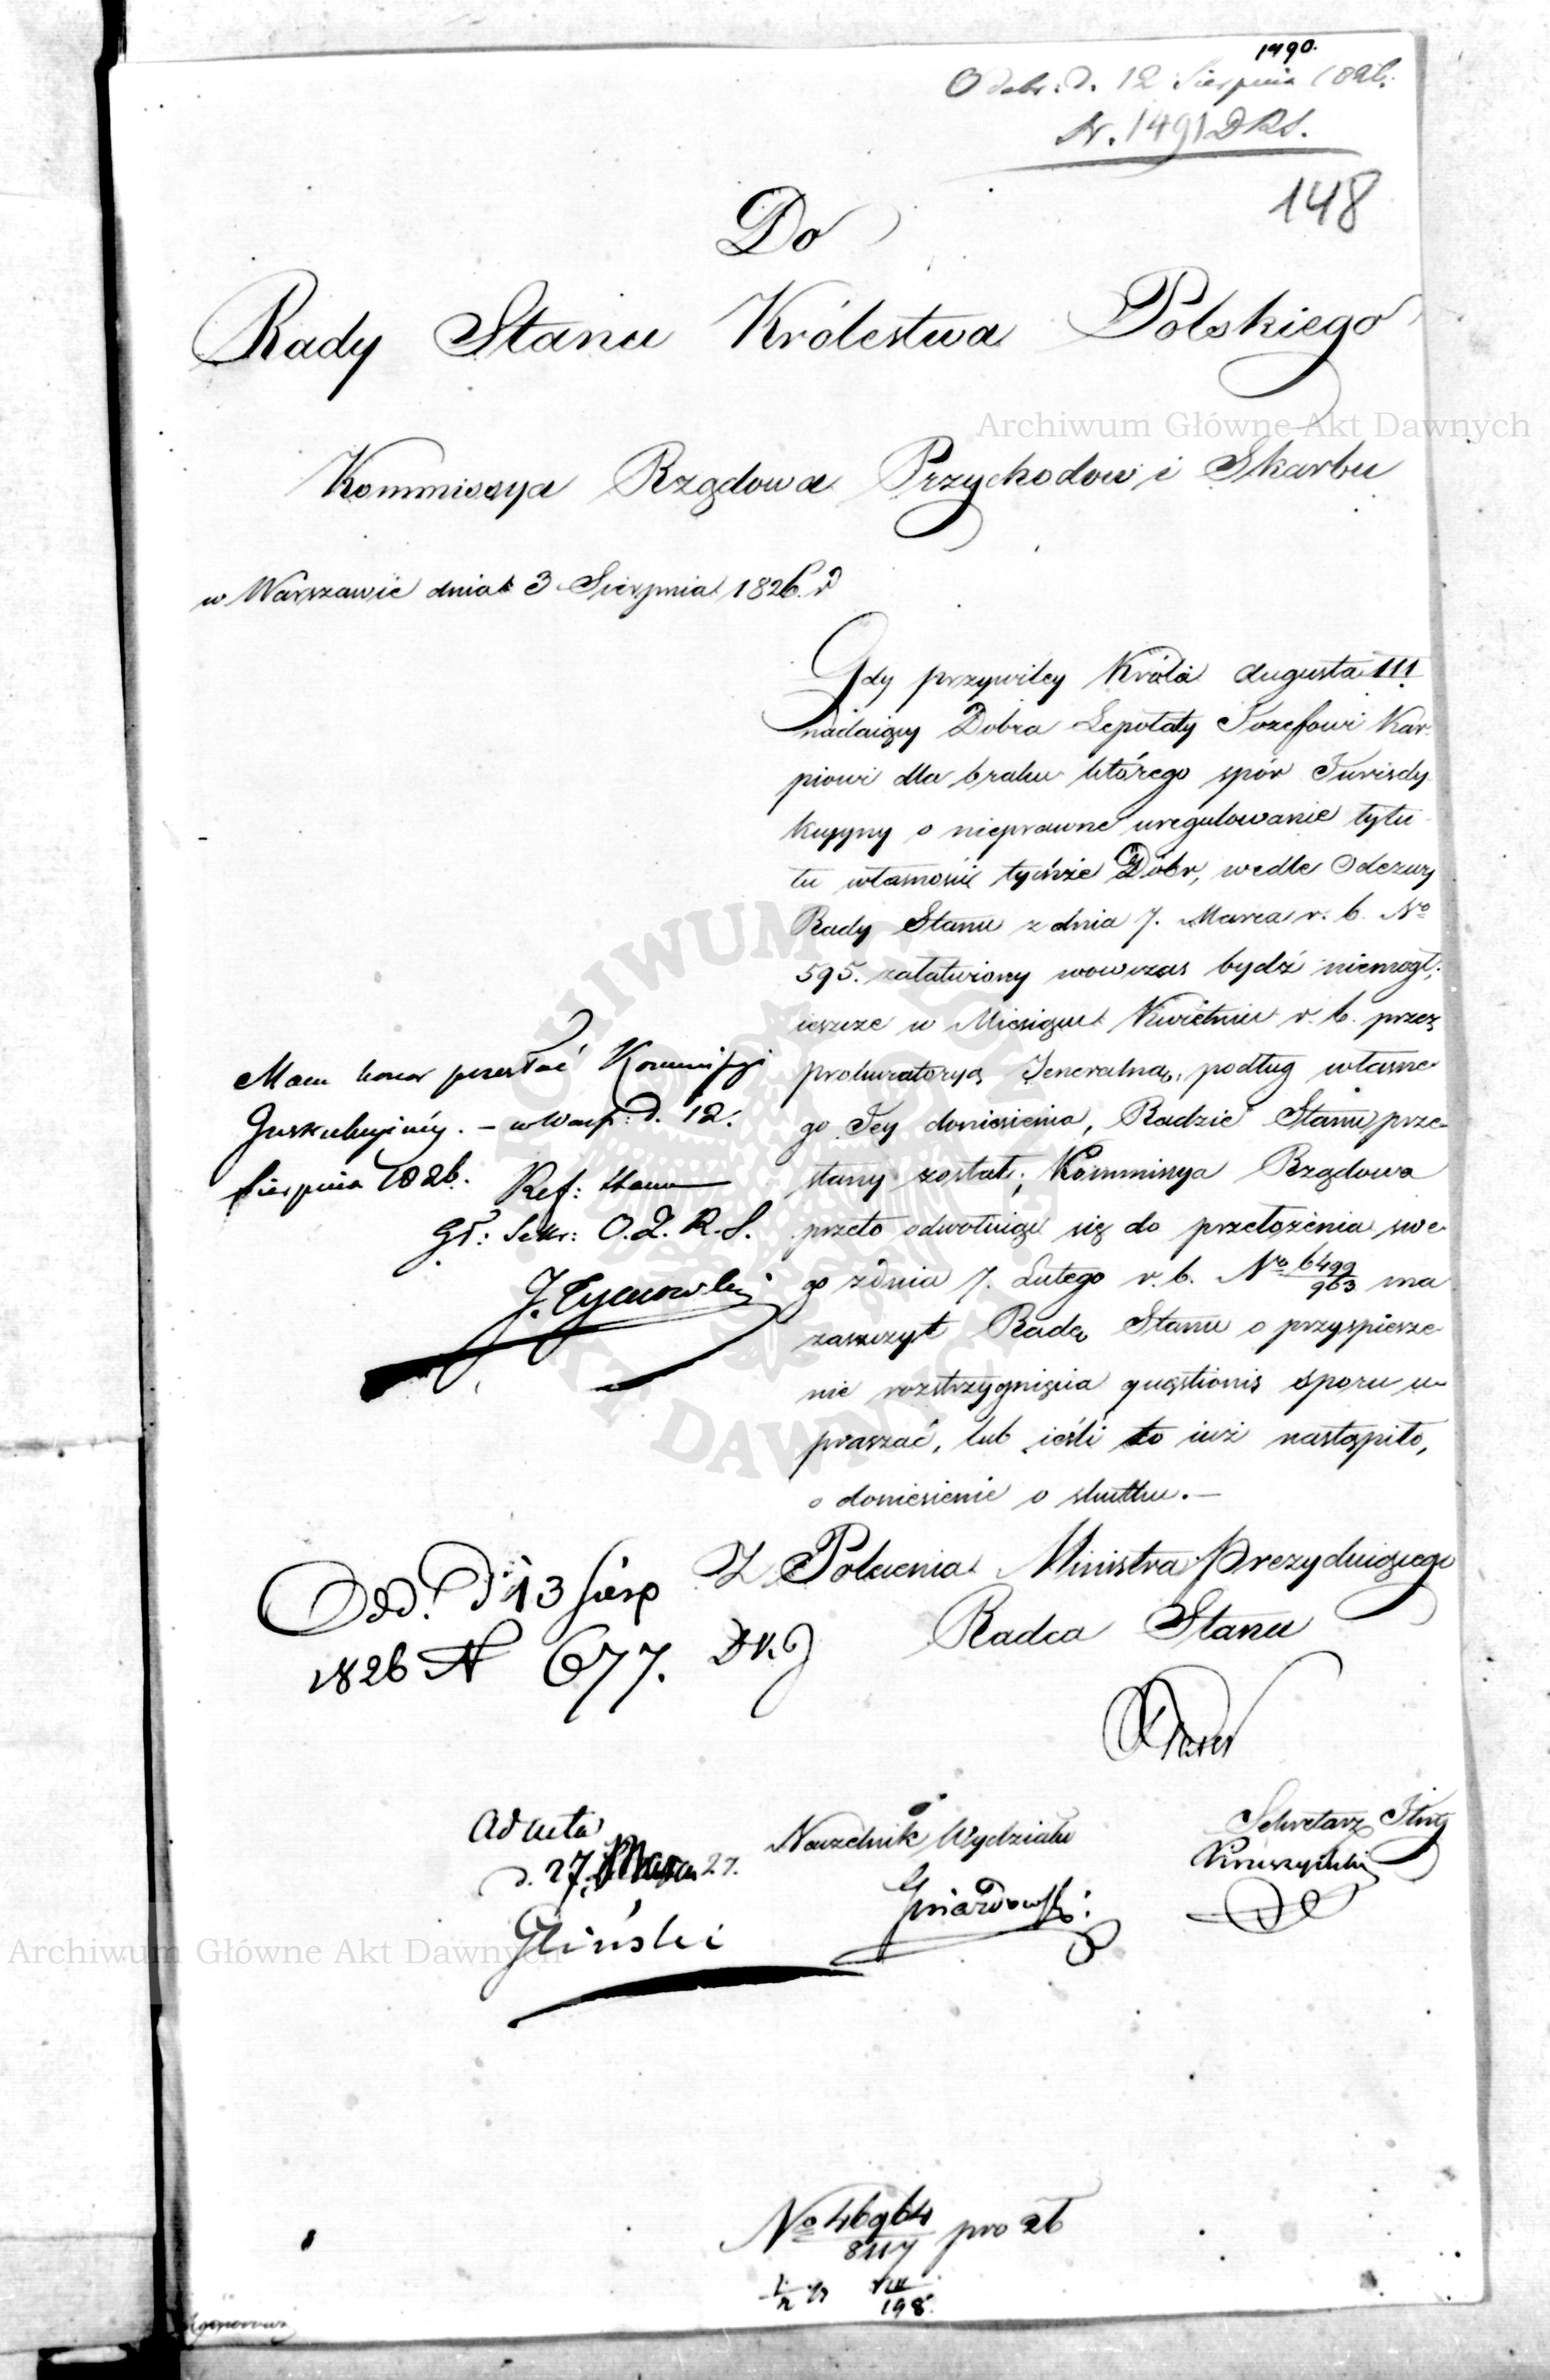 1490.
Odebr: d. 12 Sierpnia 1826.
Nr. 1491 DRS.
148
Do
Rady Stanu Królestwa Polskiego
Archiwum Główne Akt Dawnych
Kommissya Rządowa Przychodow i Skarbu
w Warszawie dnia 3 Sierpnia 1826. r
Gdy przywiley Króla Augusta III
nadaiący Dobra Lepołaty Jozefowi Kar-
piowi dla braku którego spór Jurisdy-
kcyyny o nieprawne uregulowanie tytu-
łu własności tychże Dóbr, wedle Odezwy
Rady Stanu z dnia 7. Marca r. b. No
595. załatwiony wowczas bydź niemogł,
ieszcze w Miesiącu Kwietniu r. b. przez
prokuratoryą Jeneralną, podług własne-
go Jey doniesienia, Radzie Stanu prze-
słany został; Kommissya Rządowa
przeto odwołuiąc się do przełożenia swe-
go z dnia 7. Lutego r. b. No 6499/963 ma
zaszczyt Radę Stanu o przyspiesze-
nie rozstrzygnięcia quęstionis sporu u-
praszać, lub ieśli to iuż nastąpiło,
o doniesienie o skutku.—
Mam honor przesłać Kommissyi
Instrukcyiney. – w Warsz: d. 12.
Sierpnia 1826. Ref: Stanu
Gł: Sekr: O.Z.R.S.
J. Tymowski
Z Polecenia Ministra Prezyduiącego
Radca Stanu
Odd. d. 13 Sierp
1826 N 677. DK.J
Ad acta
d. 27. Marca 27.
Gliński
Naczelnik Wydziału
Gniazdowski
Sekretarz Jlny
Kruszyński
No 46964/8117 pro 26
VIII/198.
Archiwum Główne Akt Dawnych
ARCHIWUM GŁÓWNE AKT DAWNYCH